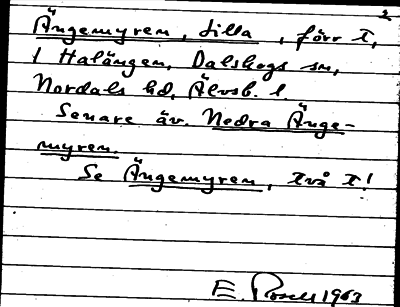 2
Ängemyren, Lilla, förr T,
i Halängen, Dalskogs sn,
Nordals hd, Älvsb. l.
Senare äv. Nedra Änge-
myren.
Se Ängemyren, två T!
E. Rosell 1963